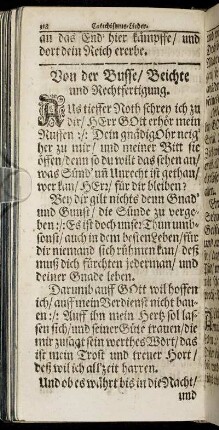 318 Catechismus-Lieder.
an das End hier kämpffe/ und
dort dein Reich ererbe.
Von der Busse/ Beichte
und Rechtfertigung.
AUs tieffer Noth schrey ich zu
dir/ HErr GOtt erhör mein
Ruffen :/: Dein gnädig Ohr neig
her zu mir/ und meiner Bitt sie
öffen/ denn so du wilt das sehen an/
was Sünd uñ Unrecht ist gethan/
wer kan/ HErr/ für dir bleiben?
Bey dir gilt nichts denn Gnad
und Gunst/ die Sünde zu verge-
ben :/: Es ist doch unser Thun umb-
sonst/ auch in dem besten Leben/ für
dir niemand sich rühmen kan/ deß
muß dich fürchten jederman/ und
deiner Gnade leben.
Darumb auff GOtt wil hoffen
ich/ auff mein Verdienst nicht bau-
en :/: Auff ihn mein Hertz sol las-
sen sich/ und seiner Güte trauen/ die
mir zusagt sein werthes Wort/ das
ist mein Trost und treuer Hort/
deß wil ich allzeit harren.
Und ob es währt bis in die Nacht/
und